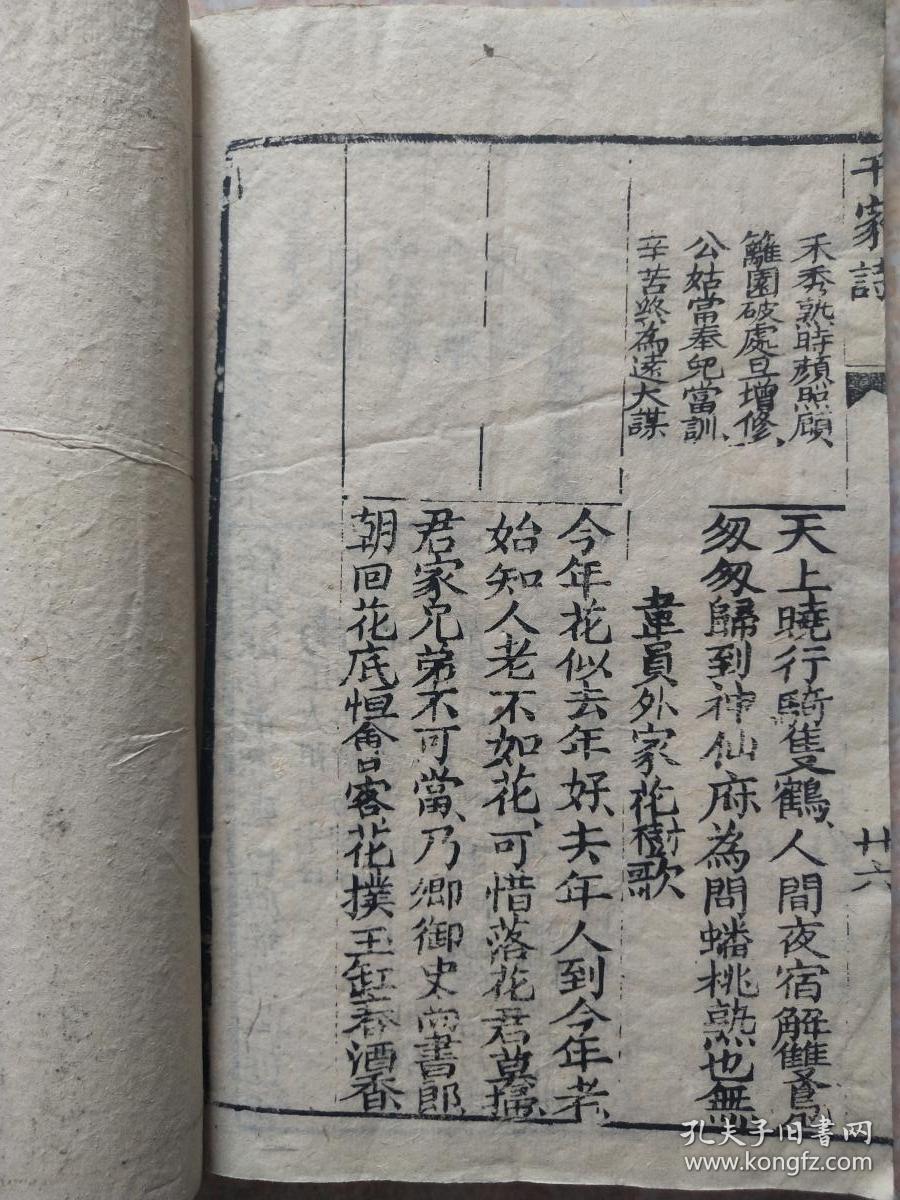 千家詩
廿六
禾秀熟時頻照顧
籬園破處旦增修
公姑當奉兒當訓
辛苦終為遠大謀
天上曉行騎隻鶴人間夜宿解雙鳧
匆匆歸到神仙府為問蟠桃熟也無
韋員外家花樹歌
今年花似去年好去年人到今年老
始知人老不如花可惜落花君莫掃
君家兄弟不可當乃卿御史尚書郎
朝回花底恒會客花撲玉缸春酒香
孔夫子旧书网
www.kongfz.com